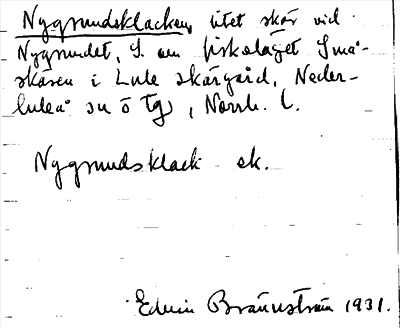 Nygrundsklacken, litet skär vid
Nygrundet, S. om fiskeläget Små-
skären i Lule skärgård, Neder-
luleå sn o tg, Norrb. l.
Nygrundsklack ek.
Edvin Brännström 1931.